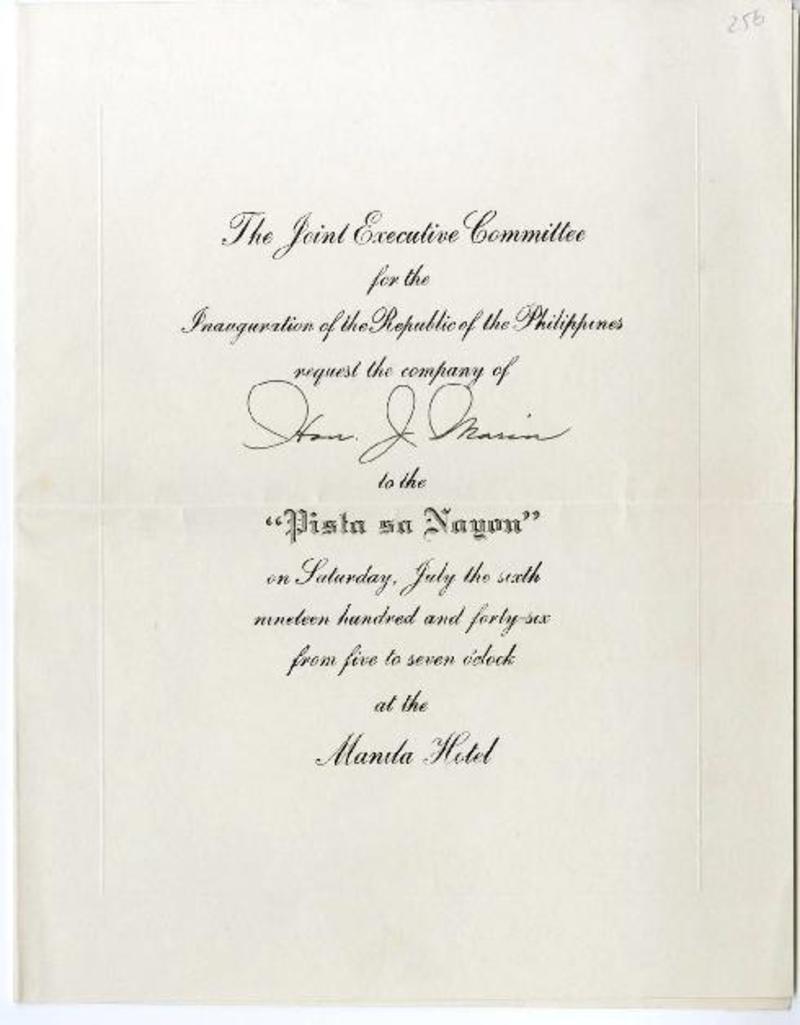 256
The Joint Executive Committee
for the
Inauguration of the Republic of the Philippines
request the company of
Hon. J. Marin
to the
“Pista sa Nayon”
on Saturday, July the sixth
nineteen hundred and forty-six
from five to seven o'clock
at the
Manila Hotel